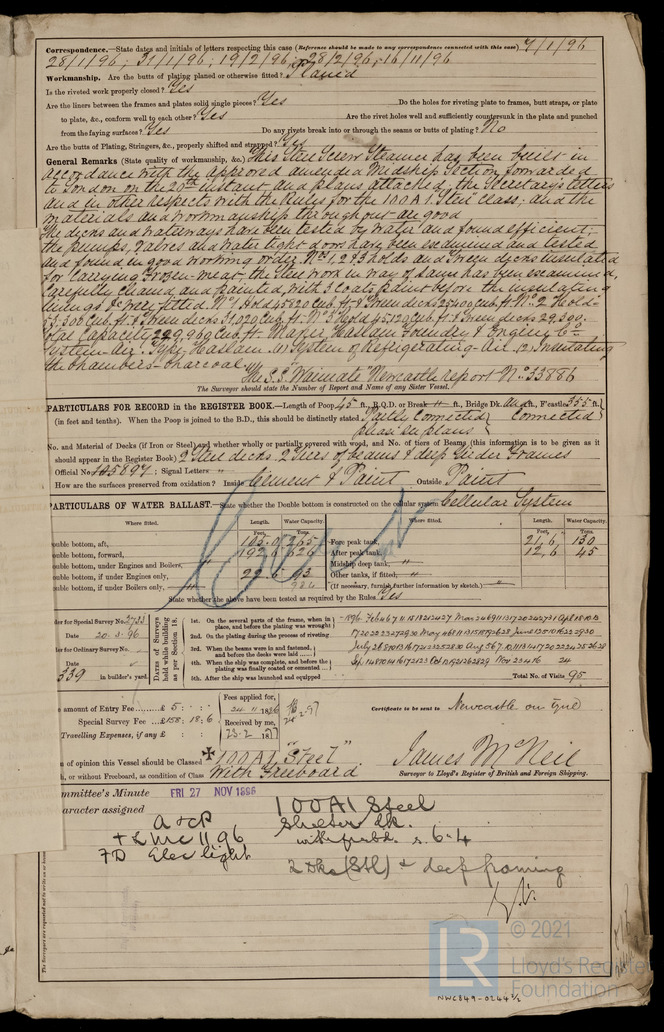 Correspondence.—State dates and initials of letters respecting this case (Reference should be made to any correspondence connected with this case) 7/1/96
28/1/96; 31/1/96; 19/2/96; 28/2/96; 16/11/96
Workmanship. Are the butts of plating planed or otherwise fitted? Planed
Is the riveted work properly closed? Yes
Are the liners between the frames and plates solid single pieces? Yes Do the holes for riveting plate to frames, butt straps, or plate
to plate, &c., conform well to each other? Yes Are the rivet holes well and sufficiently countersunk in the plate and punched
from the faying surfaces? Yes Do any rivets break into or through the seams or butts of plating? No
Are the butts of Plating, Stringers, &c., properly shifted and strapped? Yes
General Remarks (State quality of workmanship, &c.) This Steel Screw Steamer has been built in
accordance with the approved amended Midship Section forwarded
to London on the 20th instant, and plans attached, the Secretary's letters
and in other respects with the Rules for the 100A1 "Steel" class; and the
materials and workmanship throughout are good
The decks and waterways have been tested by water and found efficient;
the pumps, valves and water tight doors have been examined and tested
and found in good working order. Nos 1, 2 & 3 holds and tween decks insulated
for carrying frozen meat the steel work in way of same has been examined,
carefully cleaned, and painted, with 3 coats paint before the insulating
linings &c were fitted. No 1 Hold 45820 Cub. ft. & tween decks 25400 Cub. ft. No 2 Hold
53,500 Cub. ft. & tween decks 31,020 Cub. ft. No 3 Hold 45,120 Cub. ft. & tween decks 29,300.
Total Capacity 229,960 Cub. ft. Maker, Haslam Foundry & Enginr Co
System-Air. Type Haslam. (1) System of Refrigerating-Air (2) Insulating
the chambers-charcoal.
The S.S. Waimate Newcastle report No 33886
The Surveyor should state the Number of Report and Name of any Sister Vessel.
PARTICULARS FOR RECORD in the REGISTER BOOK.—Length of Poop 45 ft., R.Q.D. or Break " ft., Bridge Dk. ft., F'castle 355 ft.
(in feet and tenths). When the Poop is joined to the B.D., this should be distinctly stated. Connected Connected
please see plans
No. and Material of Decks (if Iron or Steel) and whether wholly or partially covered with wood, and No. of tiers of Beams (this information is to be given as it
should appear in the Register Book) 2 Steel decks. 2 Tiers of beams & deep girder frames
Official No. 105897; Signal Letters "
How are the surfaces preserved from oxidation? Inside Cement & Paint Outside Paint
PARTICULARS OF WATER BALLAST.—State whether the Double bottom is constructed on the cellular system Cellular System
Where fitted. Length. Water Capacity. Where fitted. Length. Water Capacity.
Feet. Tons. Feet. Tons.
ouble bottom, aft, 105.0 265 Fore peak tank, 21.6 130
ouble bottom, forward, 192.6 626 After peak tank, 12.6 45
ouble bottom, under Engines and Boilers, " Midship deep tank, "
ouble bottom, if under Engines only, 22.6 93 Other tanks, if fitted, "
ouble bottom, if under Boilers only, " (If necessary, furnish further information by sketch.) "
State whether the above have been tested as required by the Rules Yes
der for Special Survey No. 2733
Date 20.3.96
er for Ordinary Survey No.
Date
339 in builder's yard.
Dates of Surveys held while building as per Section 18.
1st. On the several parts of the frame, when in place, and before the plating was wrought
2nd. On the plating during the process of riveting
3rd. When the beams were in and fastened, and before the decks were laid
4th. When the ship was complete, and before the plating was finally coated or cemented
5th. After the ship was launched and equipped
Total No. of Visits 95
amount of Entry Fee £ 5 : :
Special Survey Fee £158 : 18 : 6
Travelling Expenses, if any £ : :
Fees applied for,
24 11 1896
Received by me,
23.2 1897
24.2.97
Certificate to be sent to Newcastle on Tyne
of opinion this Vessel should be Classed ✠ 100A1. "Steel"
h, or without Freeboard, as condition of Class With Freeboard
James McNeil
Surveyor to Lloyd's Register of British and Foreign Shipping.
mmittee's Minute FRI 27 NOV 1896
aracter assigned 100A1 Steel
A & CP Shelter dk.
+ LMC 11 96 with frebd. s. 6-4
FD Elec light 2 Dks (Stl) & deep framing
The Surveyors are requested not to write on or
© 2021
LR
Lloyd's Register
Foundation
NWC849-0244 2/2